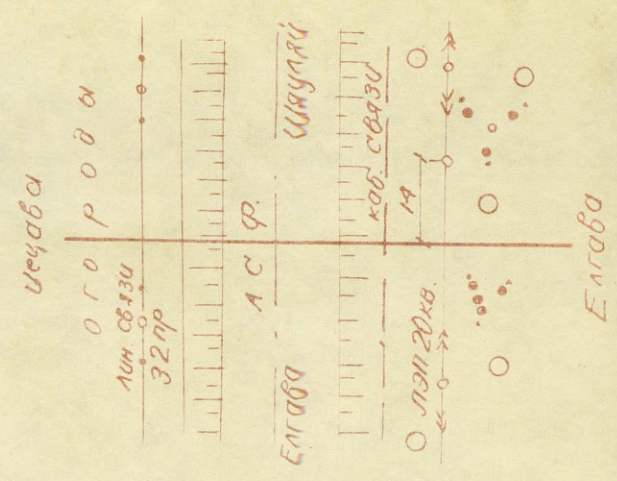 Иецава
ОГОРОДЫ
лин. связи
32 пр
Елгава
Шяуляй
АСФ.
каб. связи
14
ЛЭП 20 кв.
Елгава